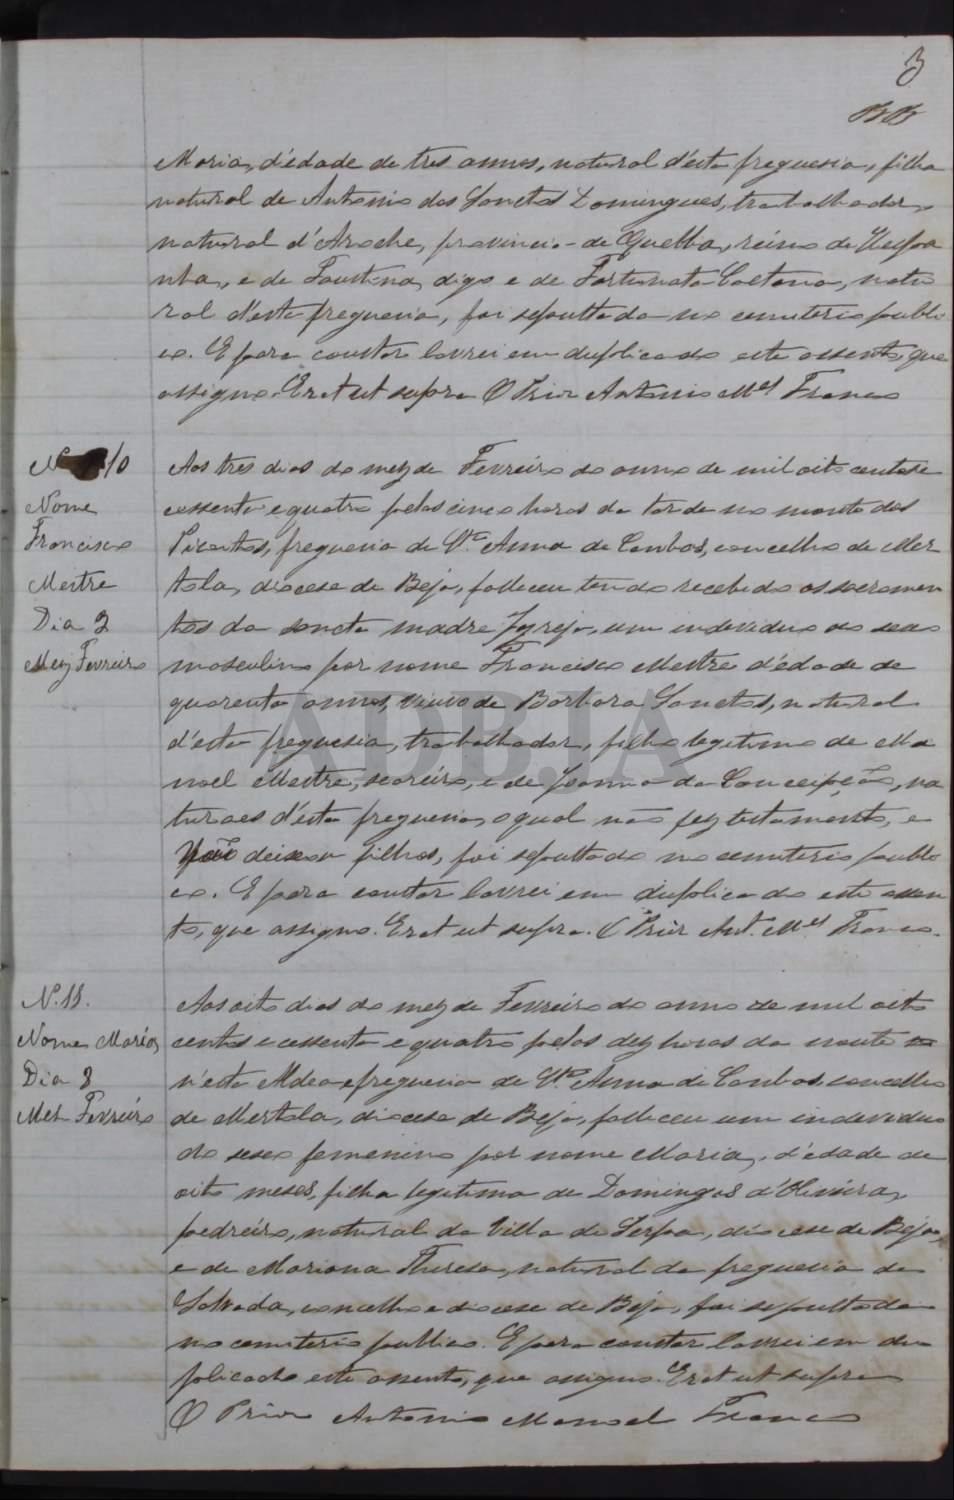 3
Maria, d'edade de tres annos, natural d'esta freguesia, filha
natural de Antonio dos Sanctos Domingues, trabalhador,
natural d'Aroche, provincia de Guelba, reino de Hespa
nha, e de Faustina, digo e de Fortunata Caetana, natu
ral d'esta freguesia, foi sepultada no cemiterio publi
co. E para constar lavrei em duplicado este assento, que
assigno. Erat ut supra O Prior Antonio Mel Franco
N. 10
Nome
Francisco
Mestre
Dia 3
Mez Fevreiro
Aos tres dias do mez de Fevreiro do anno de mil oito centos e
cessenta e quatro pelas cinco horas da tarde no monte dos
freguesia de Sta Anna de Cambas, concelho de Mer
tola, diocese de Beja, falleceu tendo recebido os sacramen
tos da sancta madre Igreja, um individuo do sexo
masculino por nome Francisco Mestre d'edade de
quarenta annos, viuvo de Barbara Sanctos, natural
d'esta freguesia, trabalhador, filho legitimo de Ma
noel Mestre, seareiro, e de Joanna da Conceipção, na
turaes d'esta freguesia, o qual não fez testamento, e
não deixou filhos, foi sepultado no cemiterio publi
co. E para constar lavrei em duplicado este assen
to, que assigno. Erat ut supra. O Prior Ant. Mel Franco.
N. 11.
Nome Maria,
Dia 8
Mez Fevreiro
Aos oito dias do mez de Fevreiro do anno de mil oito
centos e cessenta e quatro pelas dez horas da noute
n'esta Aldea e freguesia de Sta Anna de Cambas, concelho
de Mertola, diocese de Beja, falleceu um individuo
do sexo femenino por nome Maria, d'edade de
oito meses, filha legitima de Domingos d'Oliveira,
pedreiro, natural da Villa de Serpa, diocese de Beja,
e de Mariana Theresa, natural da freguesia da
Salvada, concelho e diocese de Beja, foi sepultada
no cemiterio publico. E para constar lavrei em du
plicado este assento, que assigno. Erat ut supra
O Prior Antonio Manoel Franco
ADBJA